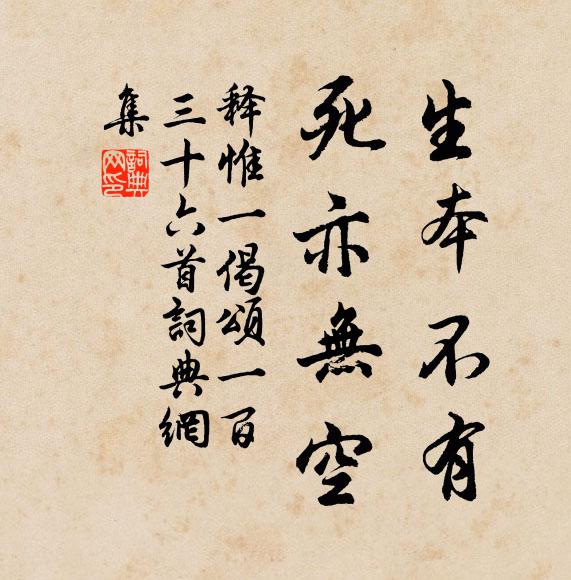 生本不有
死亦無空
释惟一偈頌一百
三十六首詞典網
集
詞典
网印